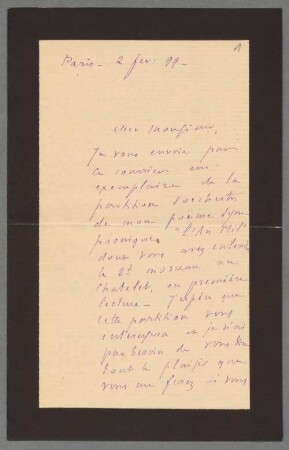 1
Paris - 2 fevr 99 -
Cher Monsieur,
Je vous envoie par
ce courrier un
exemplaire de la
partition d'orchestre
de mon poème sym
phonique "L'An Mil"
dont vous avez entendu
le 2e morceau au
Chatelet, en première
lecture - J'espère que
cette partition vous
interessera et je n'ai
pas besoin de vous dire
tout le plaisir que
vous me ferez si vous